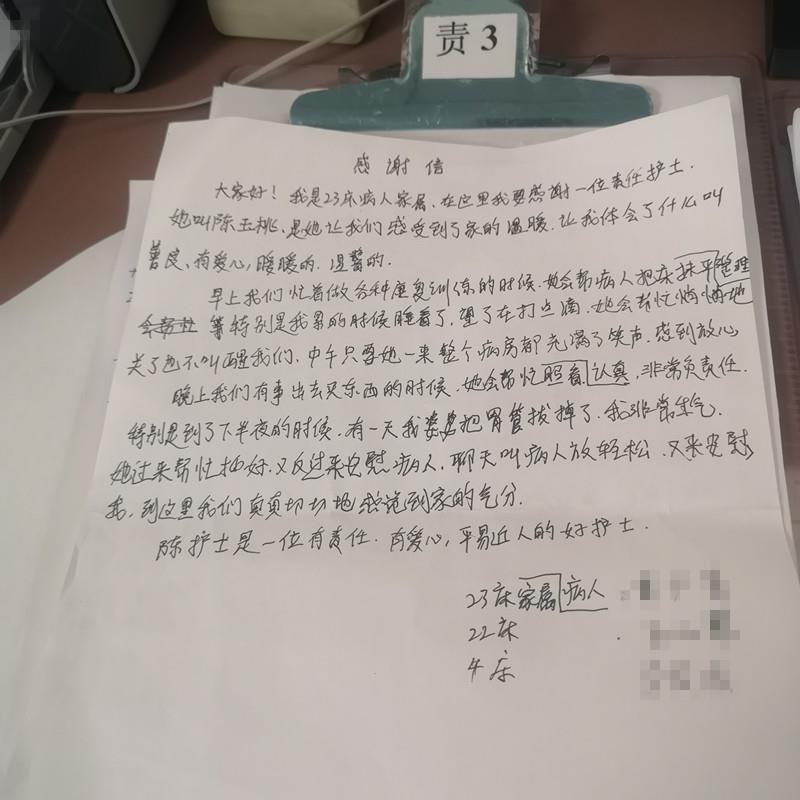 责3
感谢信
大家好！我是23床病人家属，在这里我要感谢一位责任护士.
她叫陈玉桃，是她让我们感受到了家的温暖，让我体会了什么叫
善良、有爱心，暖暖的，温馨的.
早上我们忙着做各种康复训练的时候，她会帮病人把床抹平整理
等特别是我累的时候睡着了，望了在打点滴，她会帮忙悄悄地
关了也不叫醒我们，中午只要她一来整个病房都充满了笑声，感到放心
晚上我们有事出去买东西的时候，她会帮忙照看认真，非常负责任.
特别是到了下半夜的时候，有一天我婆婆把胃管拔掉了，我非常生气
她过来帮忙插好，又反过来安慰病人，聊天叫病人放轻松，又来安慰
我，到这里我们真真切切地感觉到家的气分.
陈护士是一位有责任，有爱心，平易近人的好护士.
23床家属病人
22床
4床